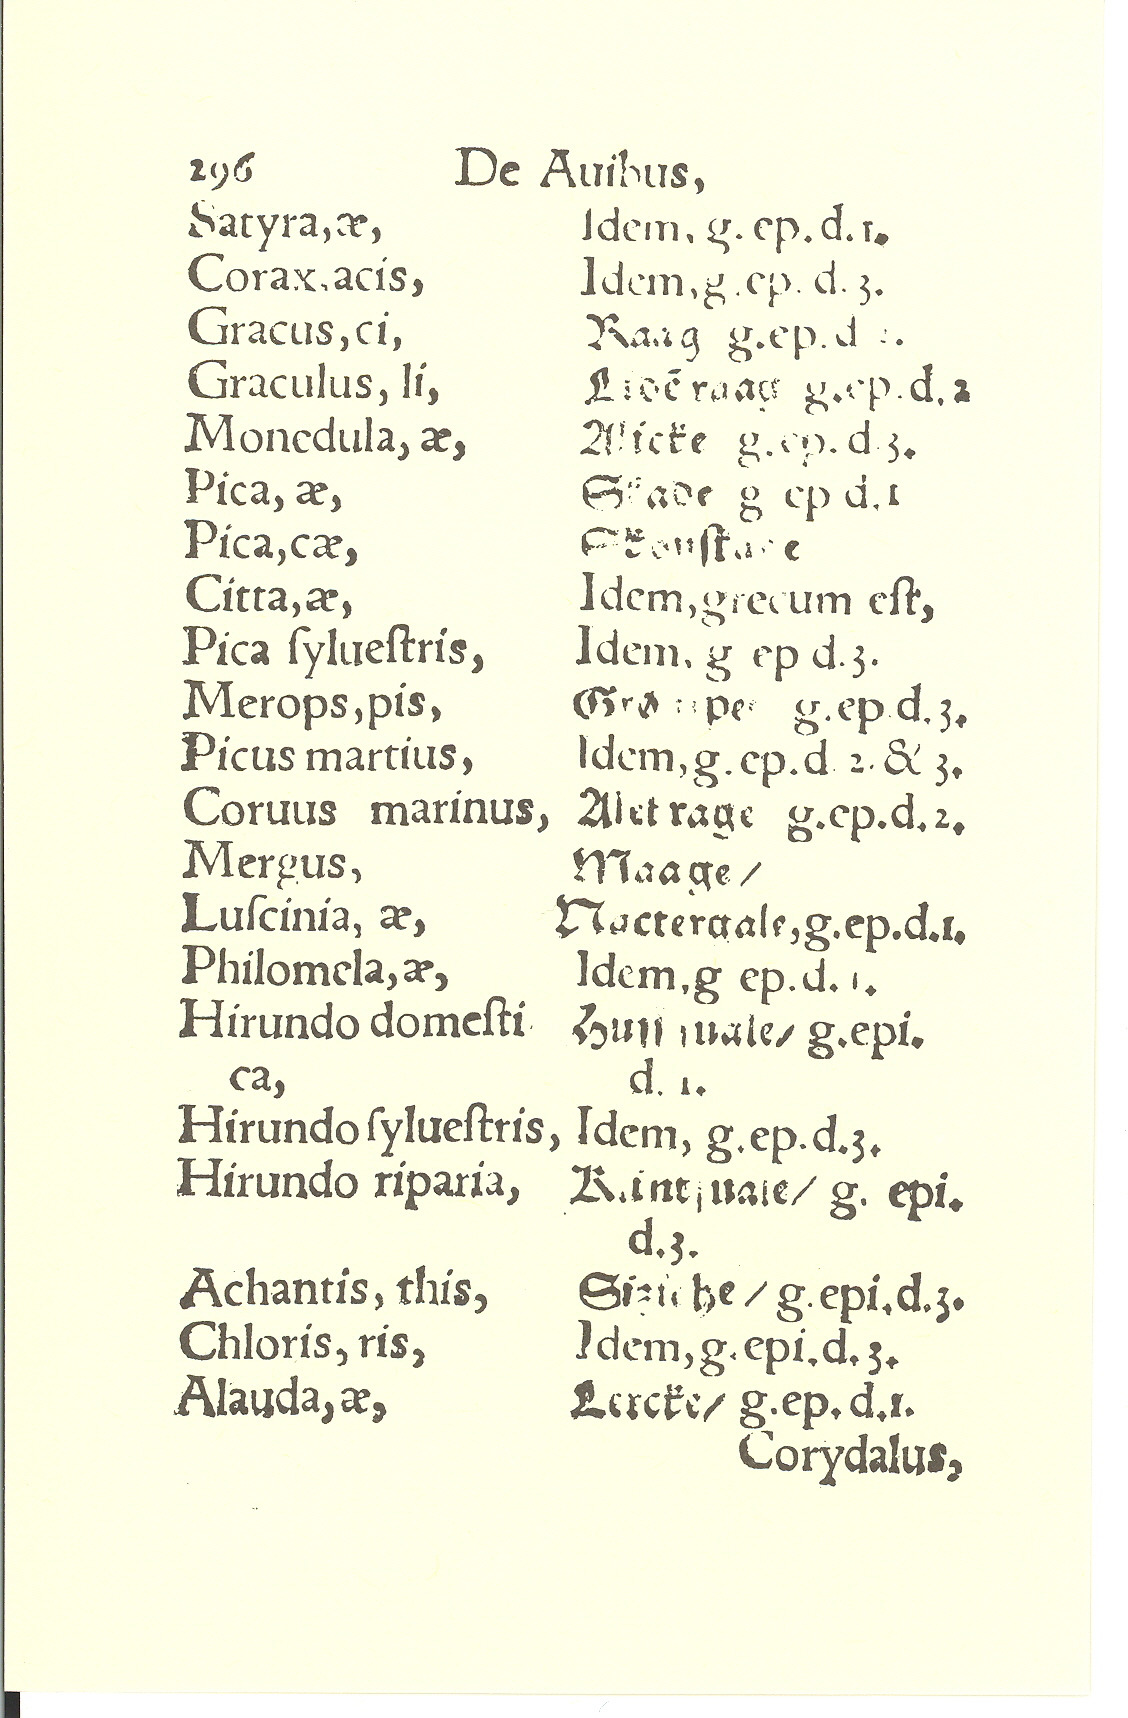 296 De Auibus,
Satyra, æ, Idem, g. ep. d. 1.
Corax, acis, Idem, g. ep. d. 3.
Gracus, ci, Raag g. ep. d
Graculus, li, raag g. ep. d. 2
Monedula, æ, Alicke g. ep. d. 3.
Pica, æ, Skade g ep d. 1
Pica, cæ,
Citta, æ, Idem, grecum eſt,
Pica ſylueſtris, Idem, g ep d. 3.
Merops, pis, g. ep d. 3.
Picus martius, Idem, g. ep. d 2. & 3.
Coruus marinus, Aletrage g. ep. d. 2.
Mergus, Maage /
Luſcinia, æ, Nactergale, g. ep. d. 1.
Philomela, æ, Idem, g ep. d. 1.
Hirundo domeſti g. epi.
ca, d. 1.
Hirundo ſylueſtris, Idem, g. ep. d. 3.
Hirundo riparia, g. epi.
d. 3.
Achantis, this, g. epi. d. 3.
Chloris, ris, Idem, g. epi. d. 3.
Alauda, æ, Lercke / g. ep. d. 1.
Corydalus,